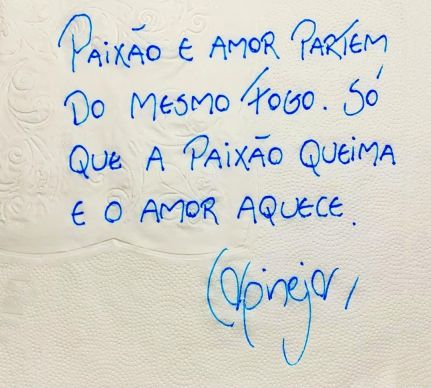 PAIXÃO E AMOR PARTEM
DO MESMO FOGO. SÓ
QUE A PAIXÃO QUEIMA
E O AMOR AQUECE.
Carpinejar,